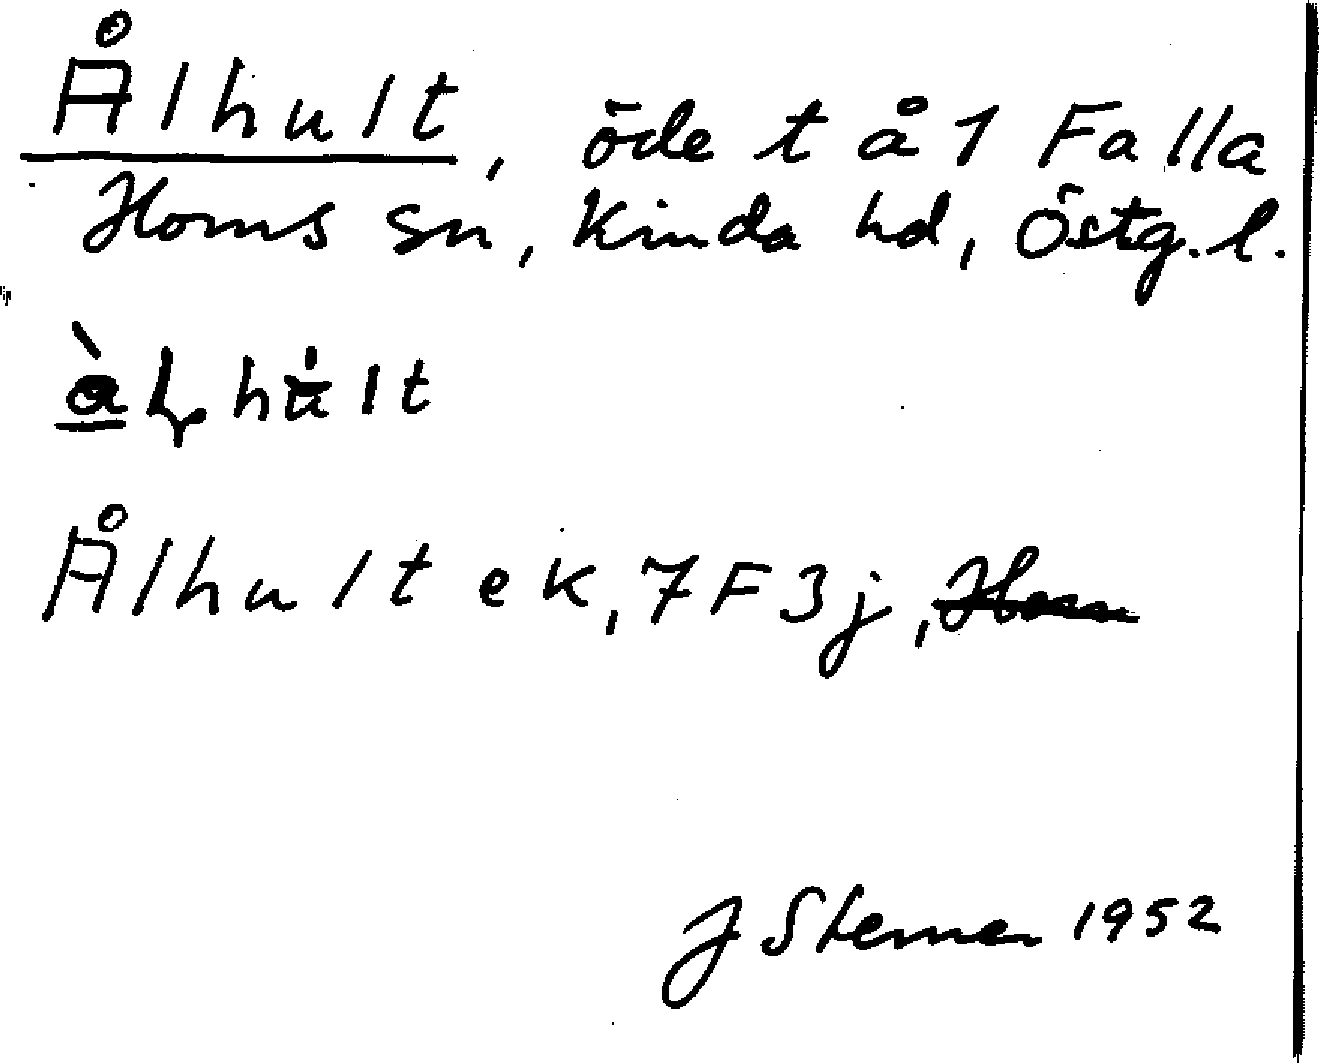 Ålhult, öde t å 1 Falla
Horns sn, Kinda hd, Östg. l.
Ålhult ek, 7F3j,
J Sterner 1952